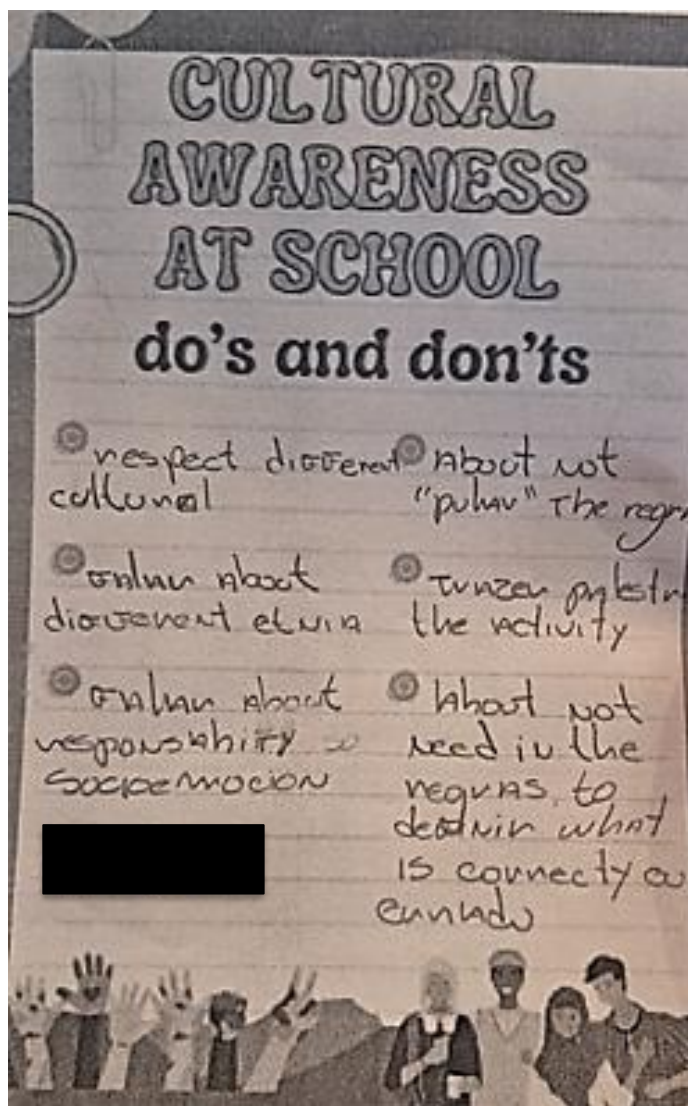 CULTURAL
AWARENESS
AT SCHOOL
do's and don'ts
respect different
cultural
falar about
different etnia
falar about
responsability so
socioemocion
About not
"pular" the regr
the activity
About not
need in the
regras, to
definir what
is correct y ou
errado